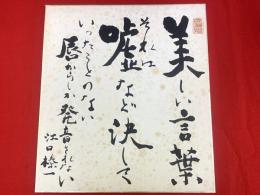 美しい言葉
それは
嘘など決して
いったことのない
唇からしか発音されない
江口榛一